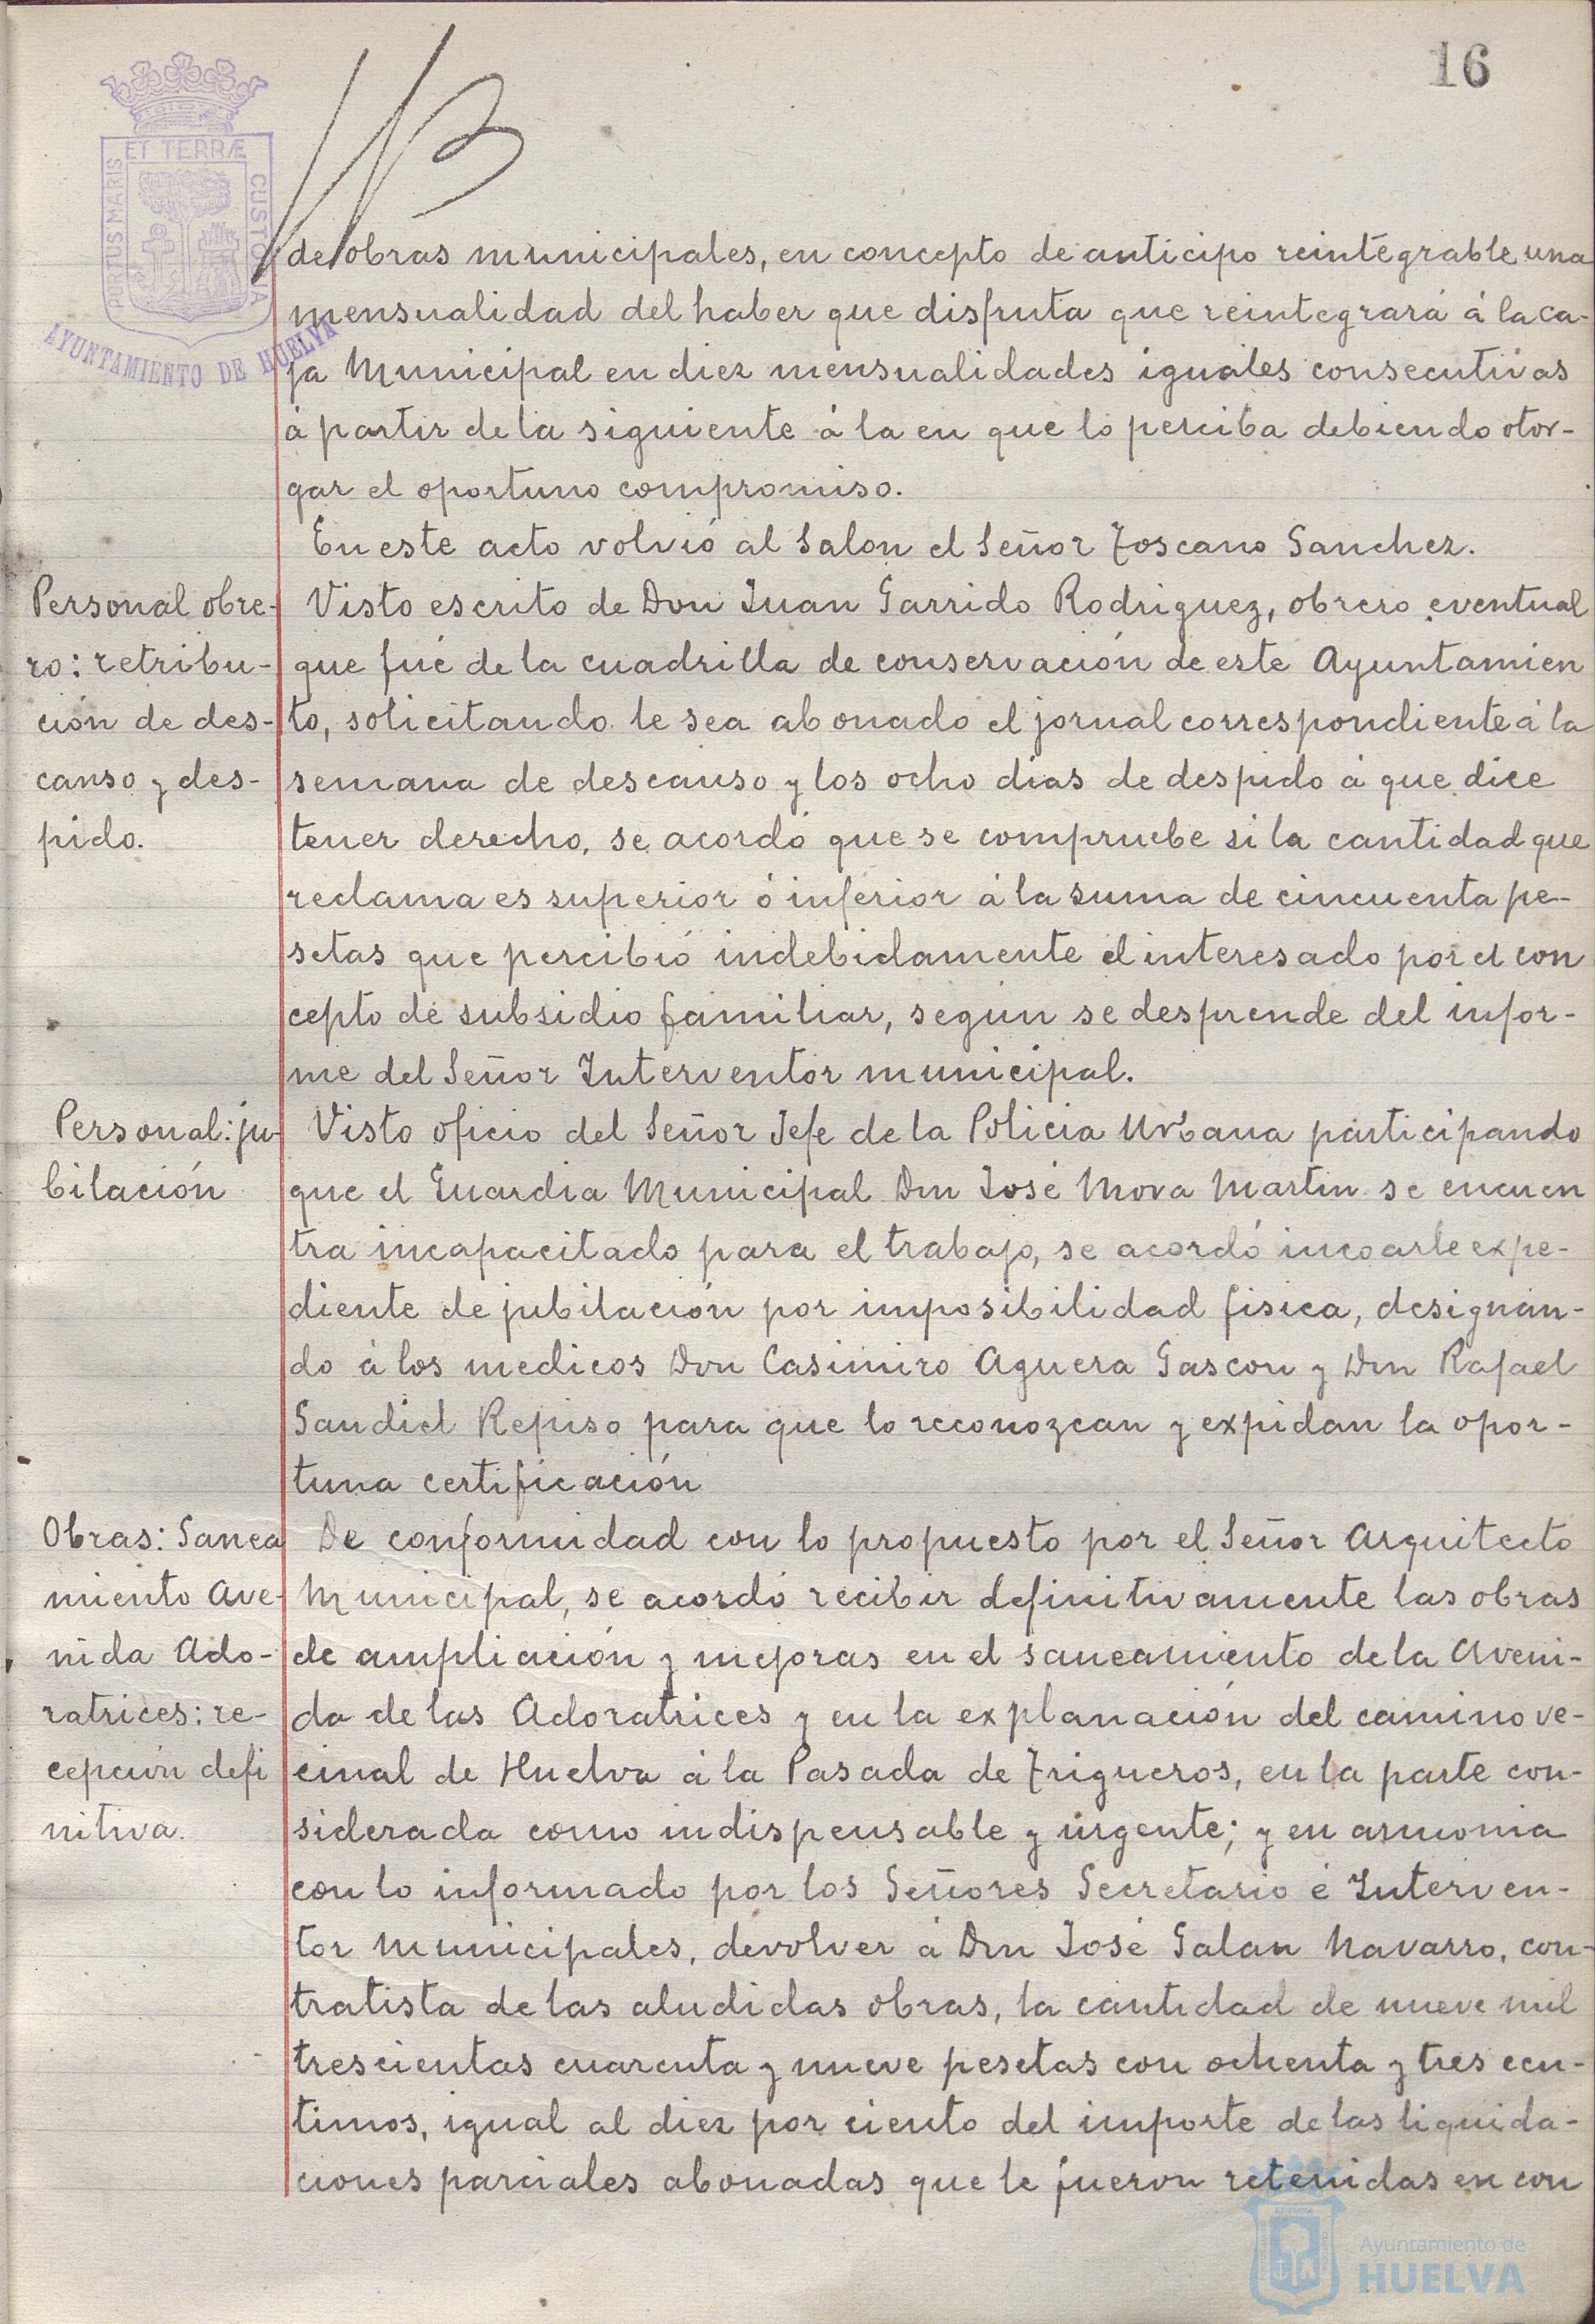 16
PORTUS MARIS ET TERRÆ CUSTODIA
AYUNTAMIENTO DE HUELVA
de obras municipales, en concepto de anticipo reintegrable una
mensualidad del haber que disfruta que reintegrará á la ca-
ja Municipal en diez mensualidades iguales consecutivas
á partir de la siguiente á la en que lo perciba debiendo otor-
gar el oportuno compromiso.
En este acto volvió al Salon el Señor Toscano Sanchez.
Personal obre-
ro: retribu-
ción de des-
canso y des-
pido.
Visto escrito de Don Juan Garrido Rodriguez, obrero eventual
que fué de la cuadrilla de conservación de este Ayuntamien
to, solicitando le sea abonado el jornal correspondiente á la
semana de descanso y los ocho dias de despido á que dice
tener derecho, se acordó que se compruebe si la cantidad que
reclama es superior ó inferior á la suma de cincuenta pe-
setas que percibió indebidamente el interesado por el con
cepto de subsidio familiar, según se desprende del infor-
me del Señor Interventor municipal.
Personal: ju-
bilación
Visto oficio del Señor Jefe de la Policia Urbana participando
que el Guardia Municipal Don José Mora Martin se encuen
tra incapacitado para el trabajo, se acordó incoarle expe-
diente de jubilación por imposibilidad fisica, designan-
do á los medicos Don Casimiro Aguera Gascon y Don Rafael
Sandiel Repiso para que lo reconozcan y expidan la opor-
tuna certificación
Obras: Sanea
miento Ave-
nida Ado-
ratrices: re-
cepción defi
nitiva.
De conformidad con lo propuesto por el Señor Arquitecto
Municipal, se acordó recibir definitivamente las obras
de ampliación y mejoras en el saneamiento de la Aveni-
da de las Adoratrices y en la explanación del camino ve-
cinal de Huelva á la Pasada de Trigueros, en la parte con-
siderada como indispensable y urgente; y en armonia
con lo informado por los Señores Secretario é Interven-
tor municipales, devolver á Don José Galan Navarro, con-
tratista de las aludidas obras, la cantidad de nueve mil
trescientas cuarenta y nueve pesetas con ochenta y tres cen-
timos, igual al diez por ciento del importe de las liquida-
ciones parciales abonadas que le fueron retenidas en con
Ayuntamiento de
HUELVA